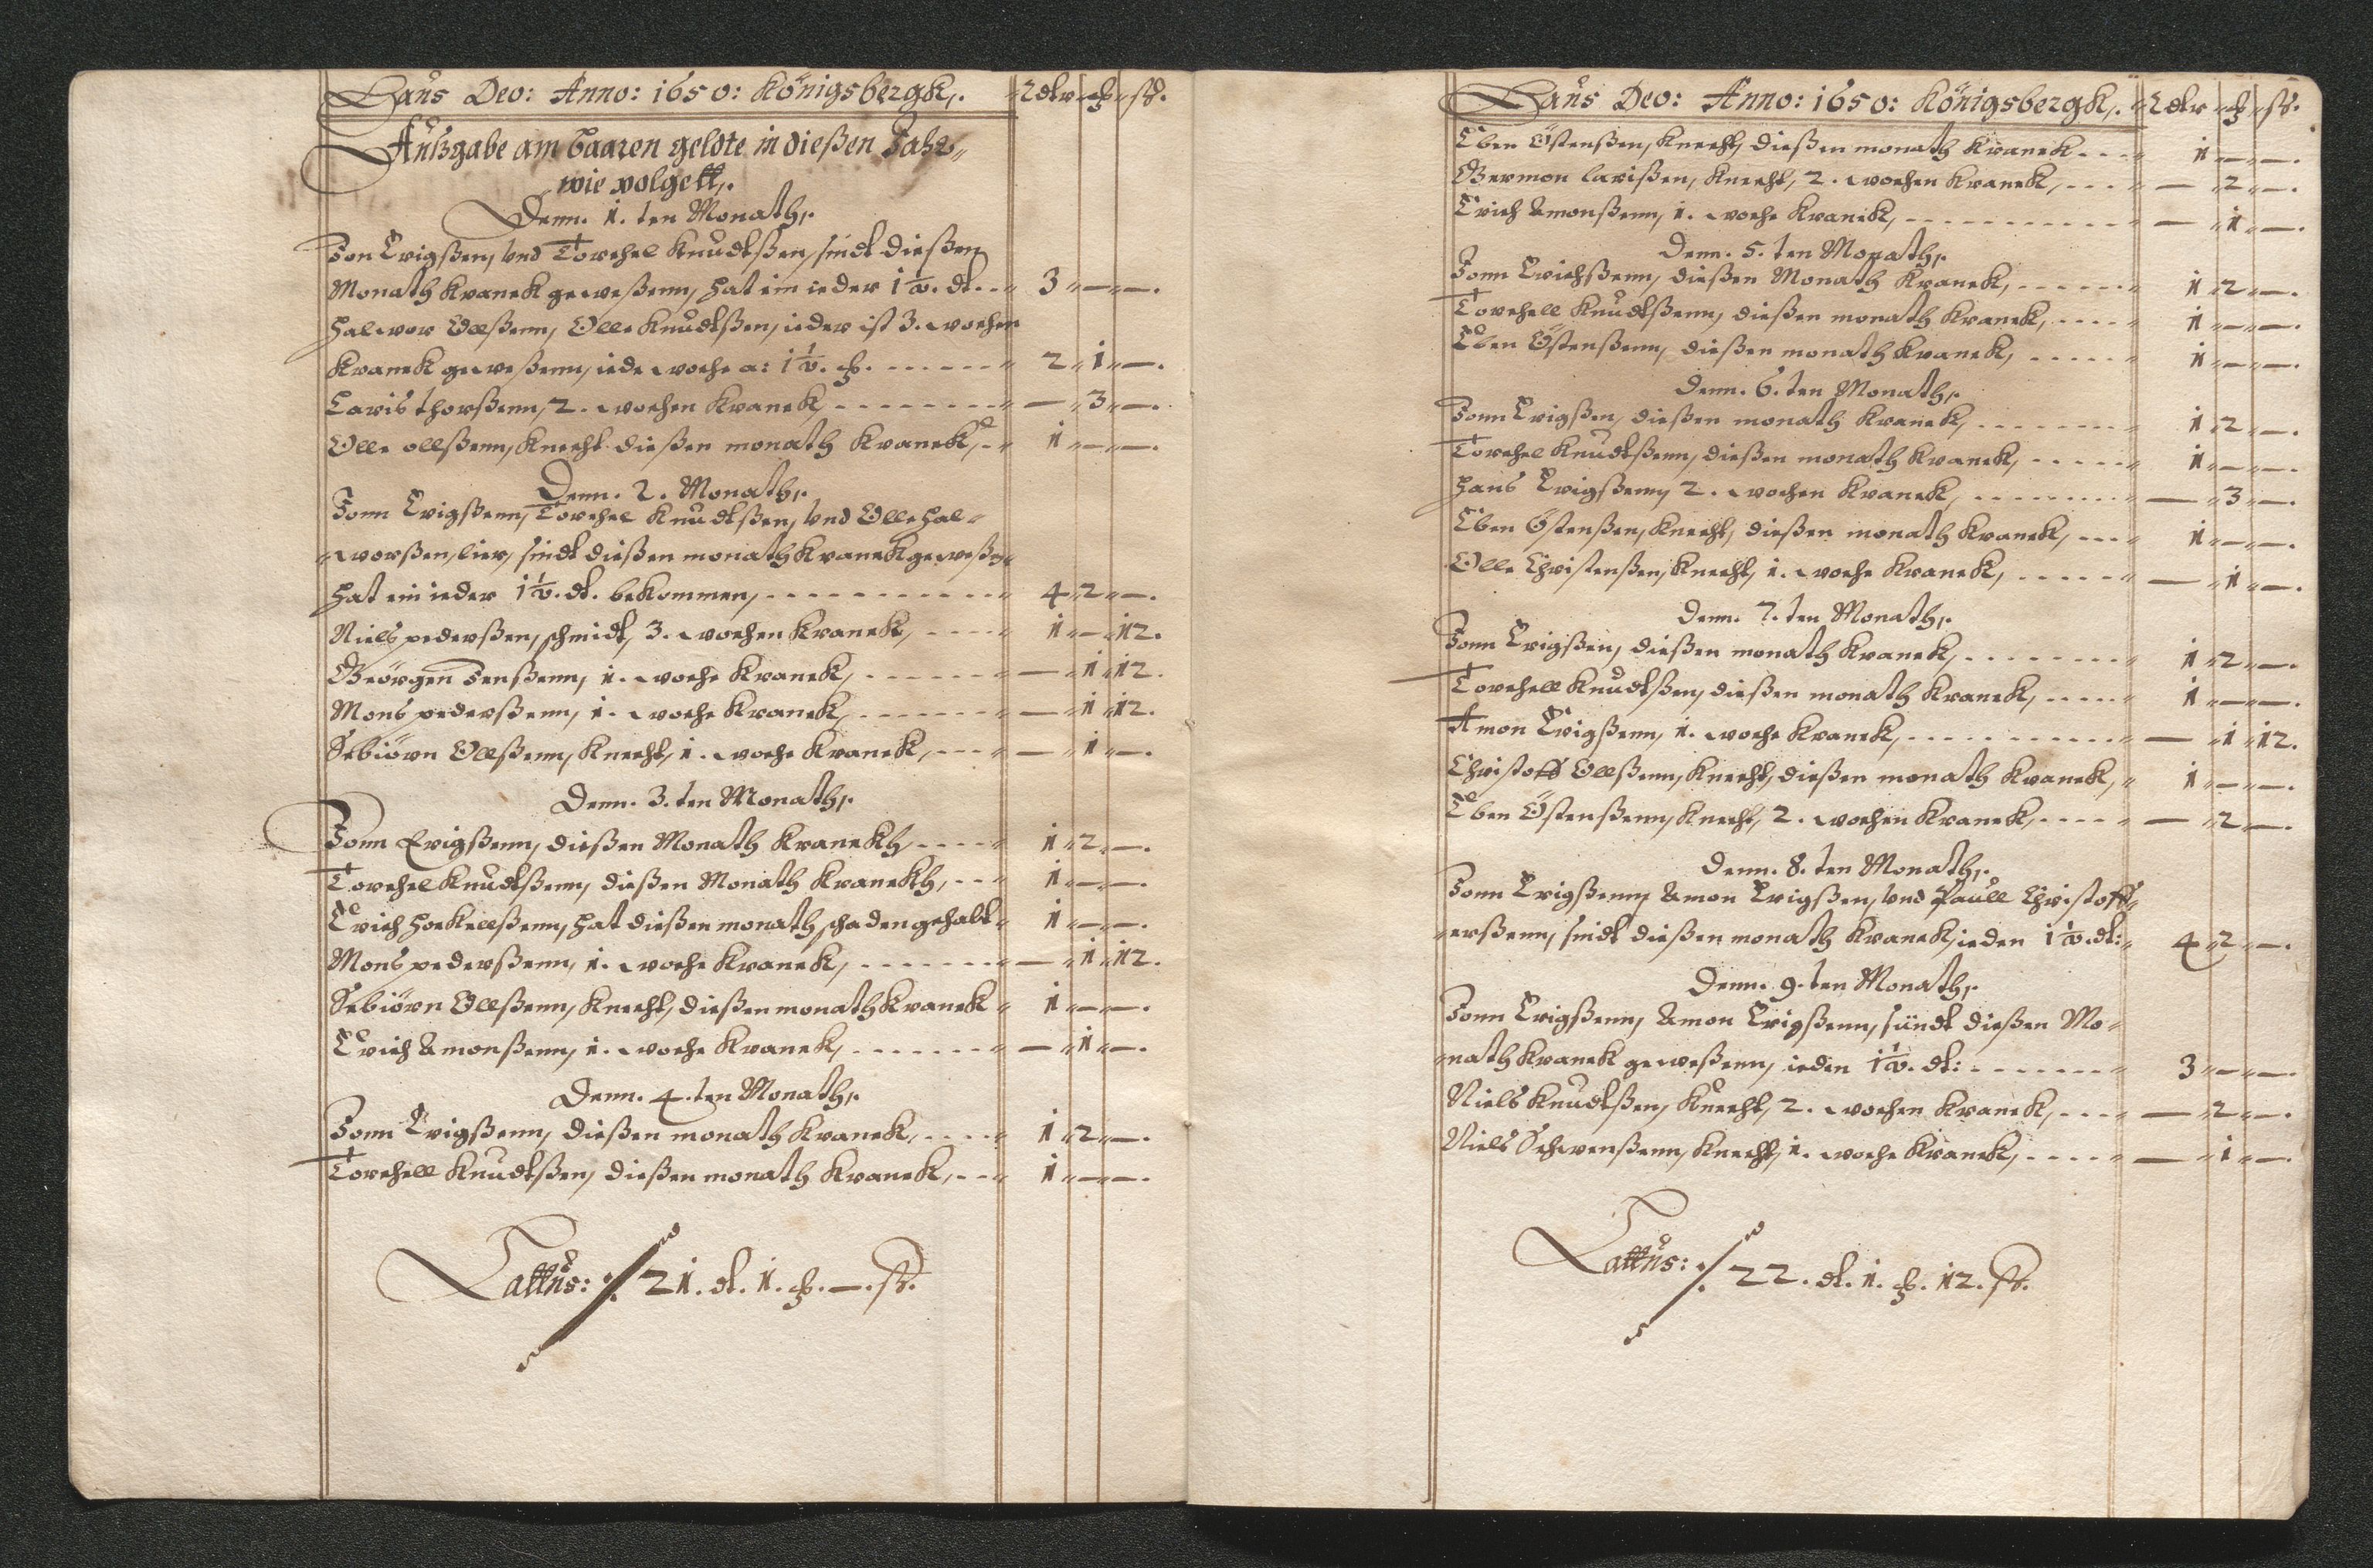 Laus Deo: Anno: 1650: Königsbergk,. Rdlr ꝑ ß.
Außgabe am baaren geldte in dießen Jahr,
wie volgett,.
Denn. 1. ten Monath,.
Jon Erigßen, vnd Torchel Knudtßen, sindt dießen
Monath Kranck geweßenn, hat ein ieder 1½. dl. - 3 — —.
Halwor Ollßenn, Olle Knudtßen, ieder ist 3. wochen
Kranck geweßenn, iede woche a: 1½. ꝑ. - - - - - - 2 1 —.
Laris thorßenn, 2. wochen Kranck, - - - - - - - - — 3 —.
Olle ollßenn, Knecht dießen monath Kranck, - 1 — —.
Denn. 2. Monath,.
Jonn Erigßenn, Torchel Knudtßen, vnd Olle Hal-
worßen, lier, sindt dießen monath Kranck geweßen
hat ein ieder 1½. dl. bekommen, - - - - - - - - - - - 4 2 —.
Niels pederßen, schmidt, 3. wochen Kranck, - - - - 1 — 12.
Geörgen Jenßenn, 1. woche Kranck, - - - - - - - — 1 12.
Mons pederßenn, 1. woche Kranck, - - - - - - - - — 1 12.
Sebiörn Ollßenn, Knecht, 1. woche Kranck, - - - - — 1 —.
Denn. 3. ten Monath,.
Jonn Erigßenn, dießen Monath Kranckh, - - - - 1 2 —.
Torchel Knudtßenn, dießen Monath Kranckh, - - - 1 — —.
Erich Hoekellßenn, hat dießen monath schaden gehabt 1 — —.
Mons pederßenn, 1. woche Kranck, - - - - - - - - — 1 12.
Sebiörn Ollßenn, Knecht, dießen monath Kranck 1 — —.
Erich Amonßenn, 1. woche Kranck, - - - - - - - - — 1 —.
Denn. 4. ten Monath,.
Jonn Erigßenn, dießen monath Kranck, - - - - - 1 2 —.
Torchell Knudtßen, dießen monath Kranck, - - - 1 — —.
Lattus: ⁒ 21. dl. 1. ꝑ. —. ß.
Laus Deo: Anno: 1650: Königsbergk,. Rdlr ꝑ ß.
Eben Östenßen, Knecht, dießen monath Kranck - - - - 1 — —.
Germon larißen, Knecht, 2. wochen Kranck, - - - - — 2 —.
Erich Amonßenn, 1. woche Kranck, - - - - - - - - - - — 1 —.
Denn. 5. ten Monath,.
Jonn Erichßenn, dießen Monath Kranck, - - - - - - 1 2 —.
Torchell Knudtßenn, dießen monath Kranck, - - - - 1 — —.
Eben Östenßenn, dießen monath Kranck, - - - - - - 1 — —.
Denn. 6. ten Monath,.
Jonn Erigßen, dießen monath Kranck, - - - - - - - - 1 2 —.
Torchel Knudtßenn, dießen monath Kranck, - - - - - 1 — —.
Hans Erigßenn, 2. wochen Kranck, - - - - - - - - - — 3 —.
Eben Östenßen, Knecht, dießen monath Kranck, - - - 1 — —.
Olle Christenßen, Knecht, 1. woche Kranck, - - - - - - — 1 —.
Denn. 7. ten Monath,.
Jonn Erigßen, dießen monath Kranck, - - - - - - - - 1 2 —.
Torchell Knudtßen, dießen monath Kranck, - - - - - 1 — —.
Amon Erigßenn, 1. woche Kranck, - - - - - - - - - - - — 1 12.
Christoff Ollßenn, Knecht, dießen monath Kranck, 1 — —.
Eben Östenßenn, Knecht, 2. wochen Kranck, - - - - - — 2 —.
Denn. 8. ten Monath,.
Jonn Erigßenn, Amon Erigßen, vnd Paull Christoff-
erßenn, sindt dießen monath Kranck, ieden 1½. dl: 4 2 —.
Denn. 9. ten Monath,.
Jonn Erigßenn, Amon Erigßenn, sündt dießen Mo-
nath Kranck geweßenn, ieden 1½. dl: - - - - - - - - 3 — —.
Niels Knudtßen, Knecht, 2. wochen Kranck, - - - - — 2 —.
Niels Schwenßenn, Knecht, 1. woche Kranck, - - - - - — 1 —.
Lattus: ⁒ 22. dl. 1. ꝑ. 12. ß.